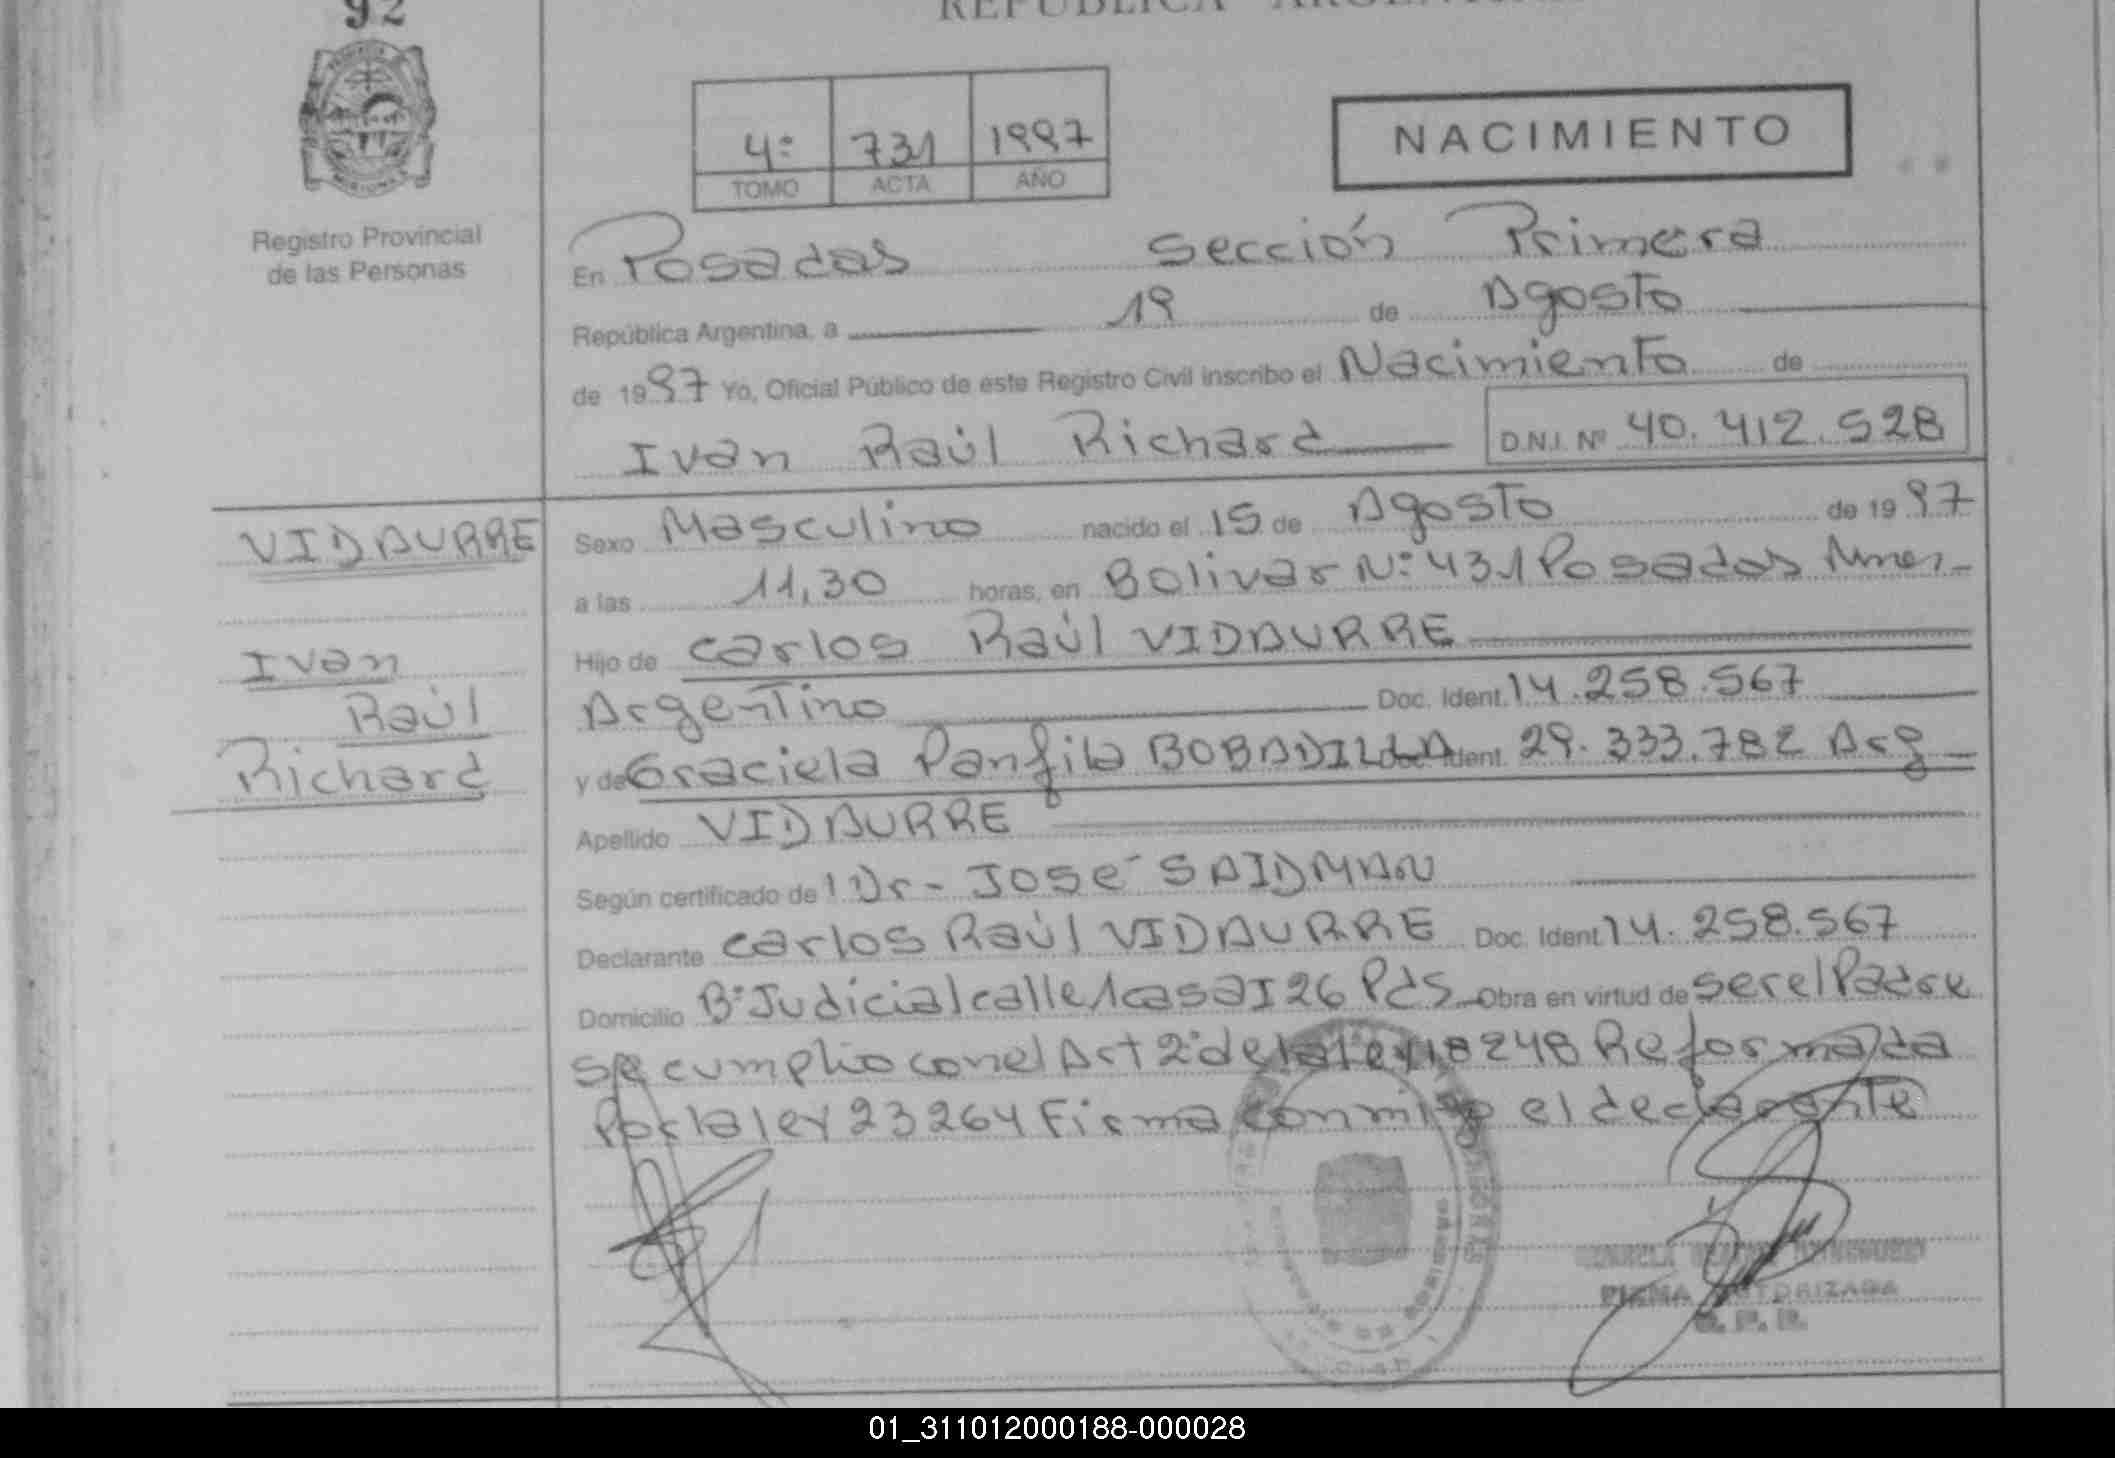 92
REPUBLICA ARGENTINA
Registro Provincial
de las Personas
4º 731 1997
TOMO ACTA AÑO
NACIMIENTO
En Posadas Sección Primera
República Argentina, a 19 de Agosto
de 1997 Yo, Oficial Público de este Registro Civil inscribo el Nacimiento de
Ivan Raúl Richard D.N.I. Nº 40.412.528
VIDAURRE
Ivan
Raúl
Richard
Sexo Masculino nacido el 15 de Agosto de 1997
a las 11,30 horas, en Bolivar Nº 431 Posadas Mnes-
Hijo de Carlos Raúl VIDAURRE
Argentino Doc. Ident. 14.258.567
y de Graciela Panfila BOBADILLA Doc. Ident. 29.333.782 Arg
Apellido VIDAURRE
Según certificado de Dr- JOSÉ SAIDMAN
Declarante Carlos Raúl VIDAURRE Doc. Ident. 14.258.567
Domicilio Bº Judicial calle 1 casa I 26 Pds Obra en virtud de ser el Padre
Se cumplio con el Art 2º de la ley 18248 Reformada
Por la ley 23264 Firma conmigo el declarante
FIRMA AUTORIZADA
01_311012000188-000028